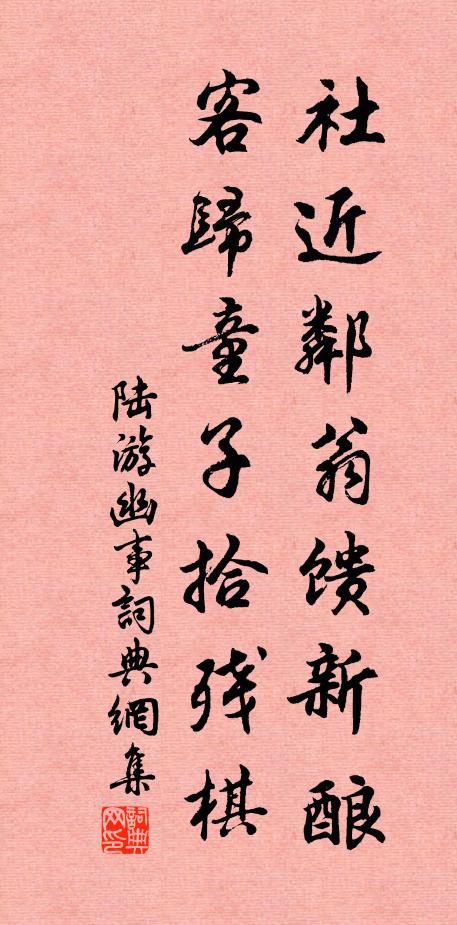 社近鄰翁馈新酿
客歸童子拾残棋
陆游幽事詞典網集
詞典网印